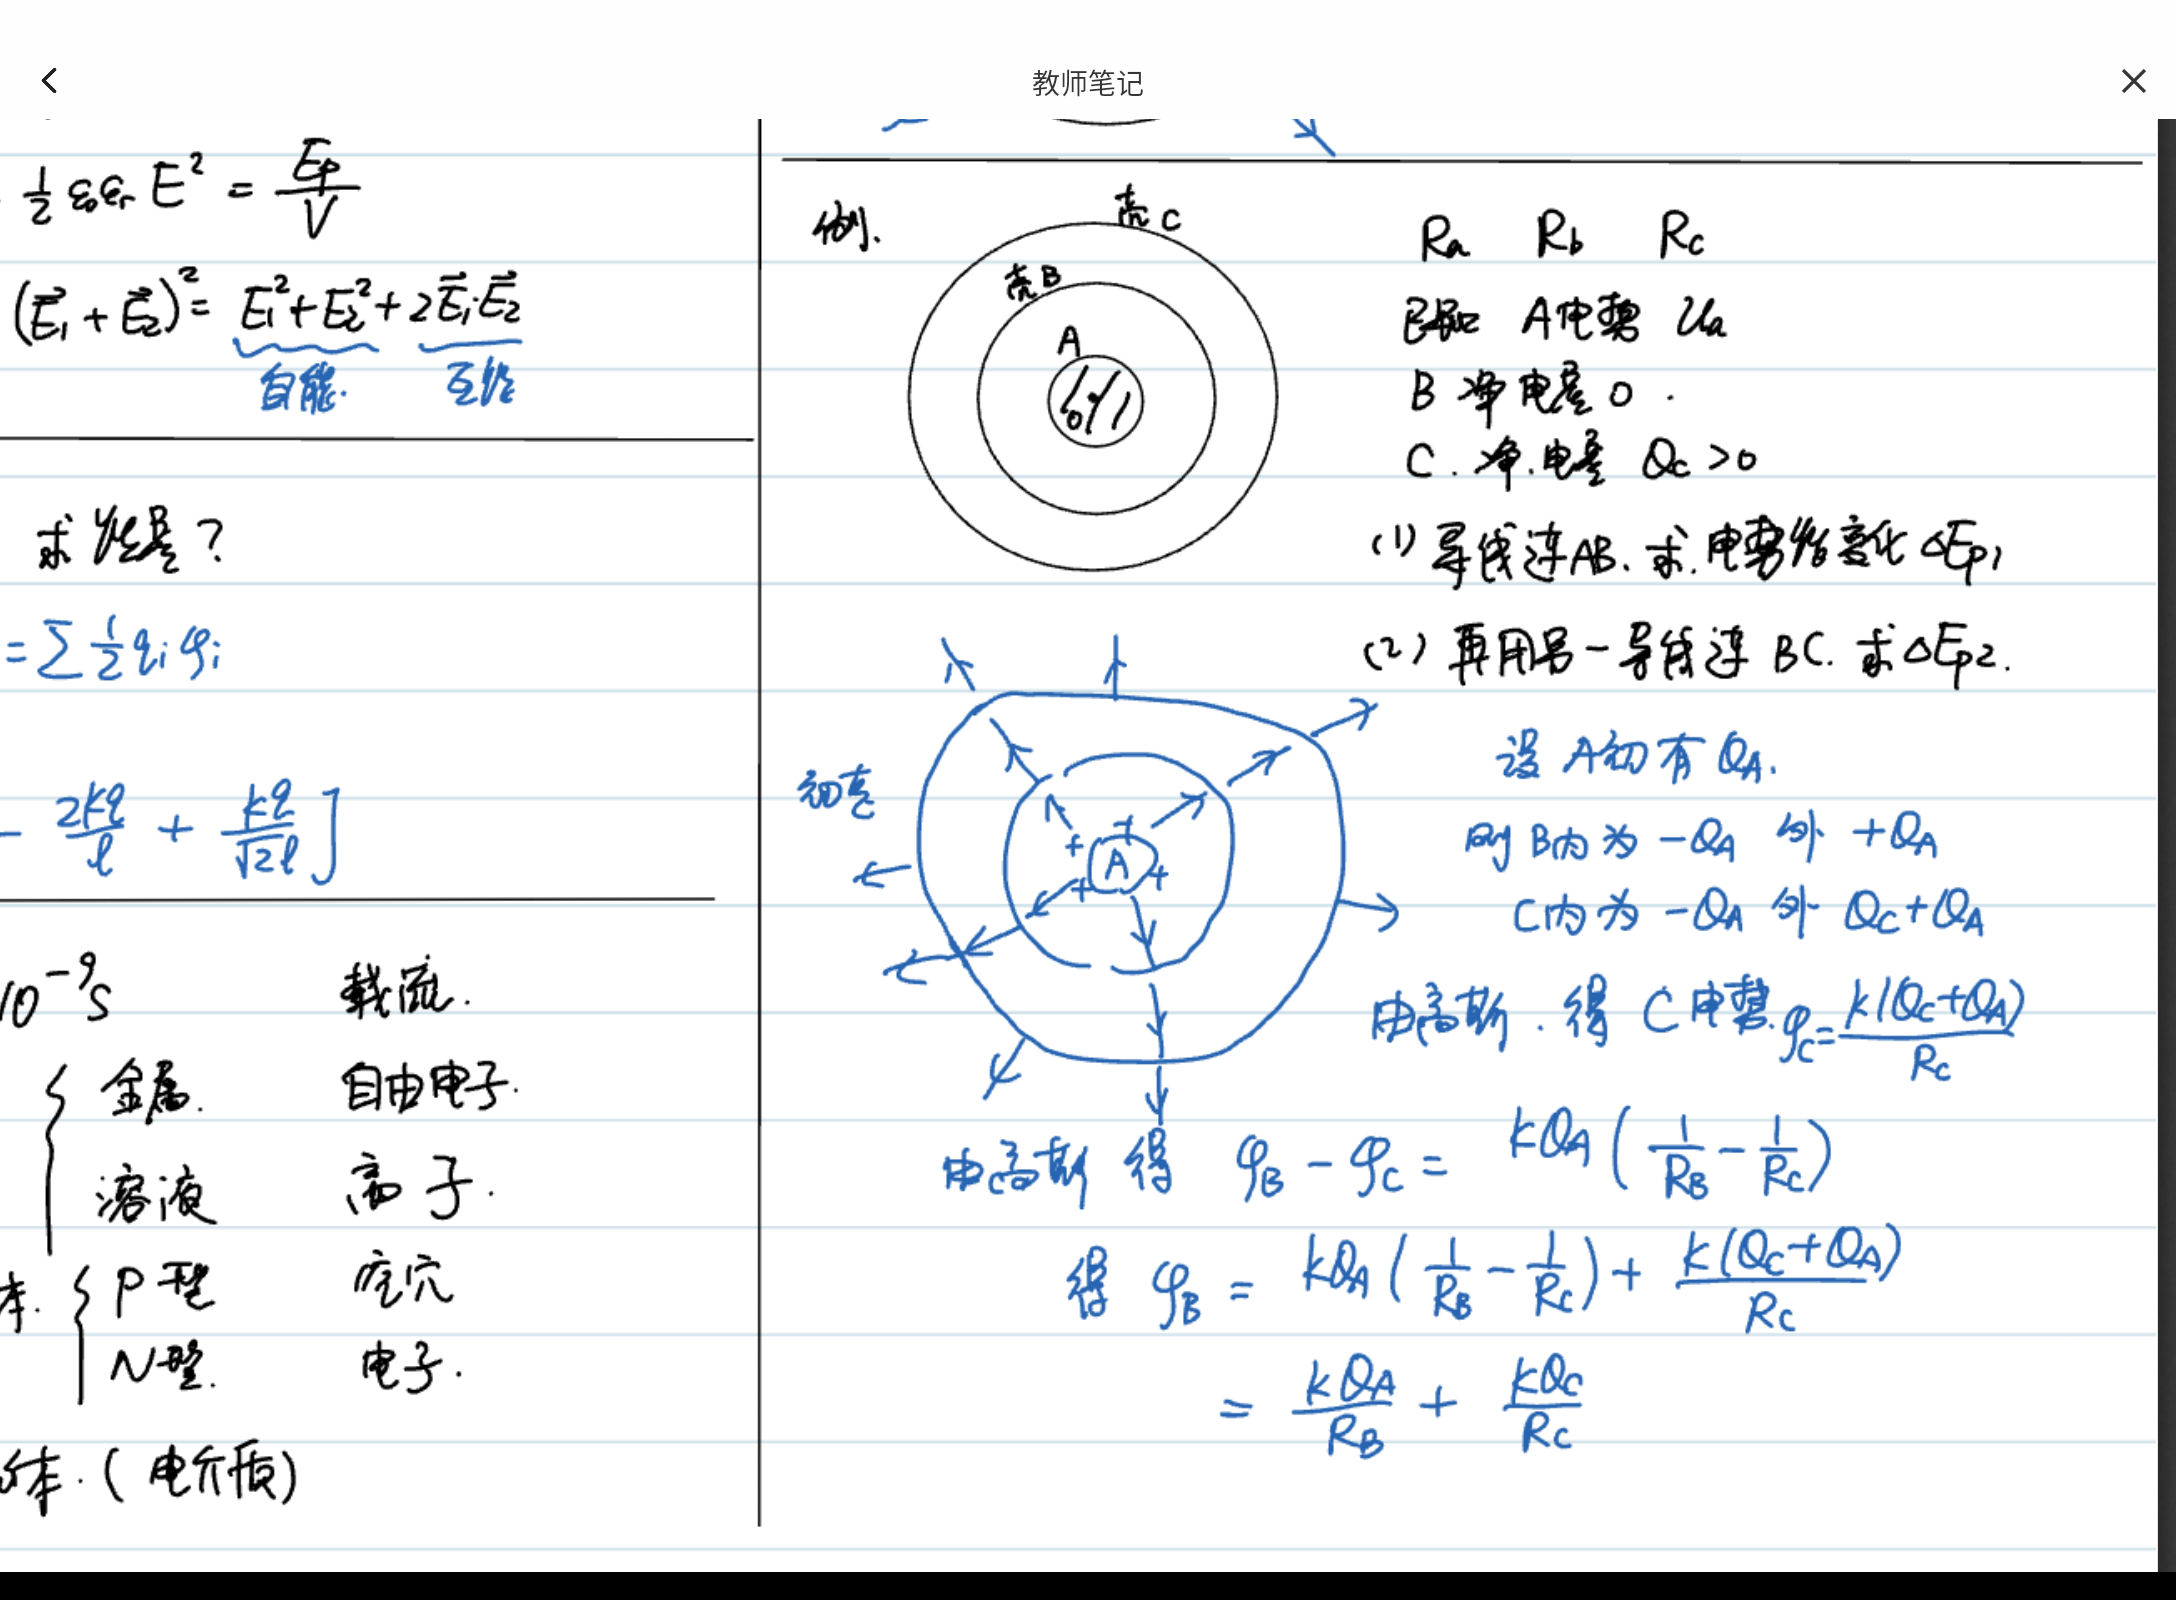 教师笔记
½ε₀εᵣE² = Ep/V
(E⃗₁ + E⃗₂)² = E₁² + E₂² + 2E⃗₁·E⃗₂
自能. 互能
求能量?
= Σ ½ qᵢφᵢ
- 2kq/l + kq/√2l ]
10⁻⁹s 载流.
金属. 自由电子.
溶液 离子.
体. P型 空穴
N型. 电子.
体.(电介质)
例.
壳C
壳B
A
O
Ra Rb Rc
已知 A电势 Ua
B 净电量 0.
C. 净电量 Qc > 0
(1) 导线连AB. 求.电势能变化 ΔEp1
(2) 再用另一导线连 BC. 求ΔEp2.
初态
A
设 A初有 QA.
则 B内为 -QA 外 +QA
C内为 -QA 外 QC+QA
由高斯. 得 C电势. φC = k(QC+QA)/RC
由高斯 得 φB - φC = kQA(1/RB - 1/RC)
得 φB = kQA(1/RB - 1/RC) + k(QC+QA)/RC
= kQA/RB + kQC/RC